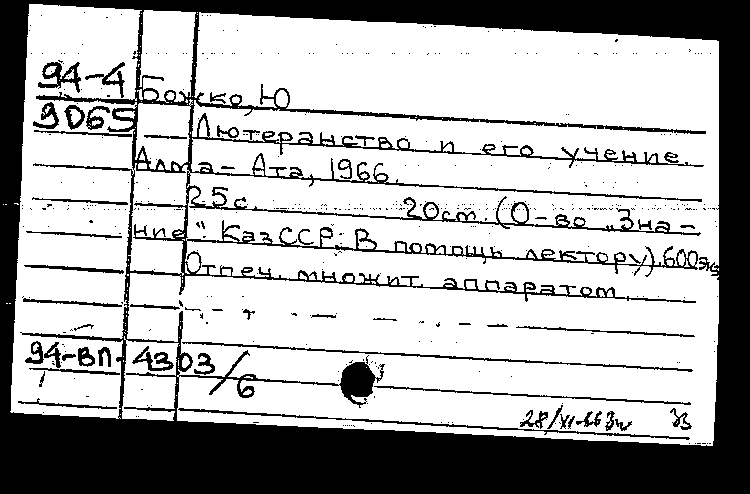 94-4
9065
Божко, Ю
Лютеранство и его учение.
Алма-Ата, 1966.
25с. 20см. (О-во „Зна-
ние" КазССР. В помощь лектору). 600экз
Отпеч. множит. аппаратом.
94-ВП-4303/6